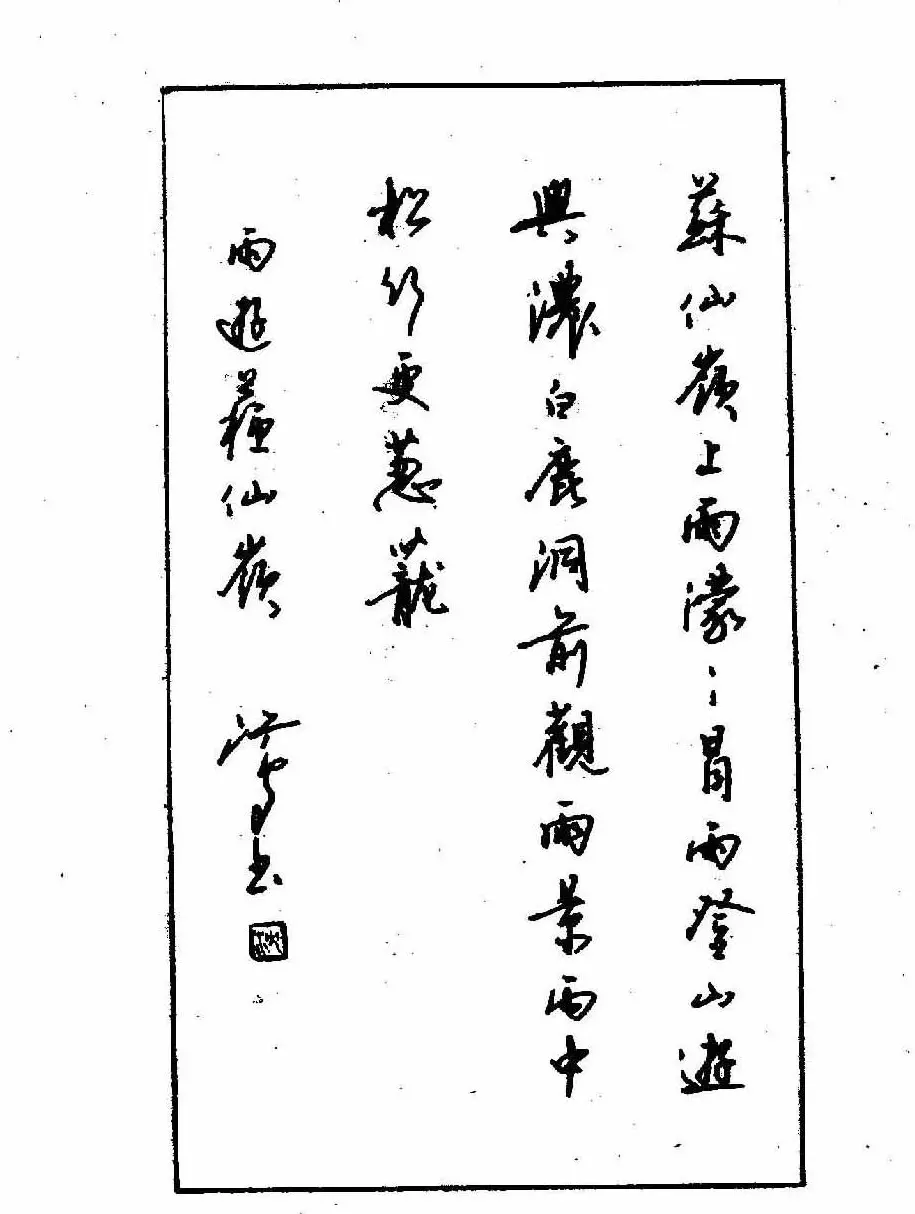 蘇仙嶺上雨濛〻冒雨登山遊
興濃白鹿洞前觀雨景雨中
松竹更蔥蘢
雨遊蘇仙嶺
書